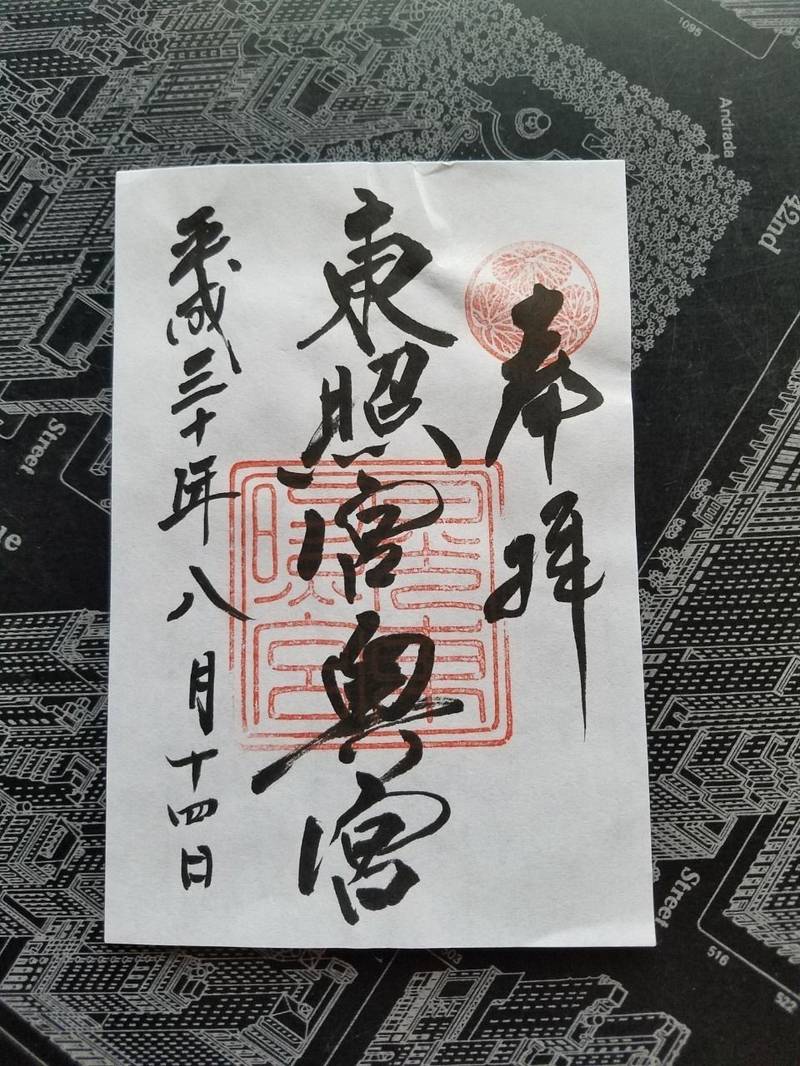 奉拝
東照宮奥宮
平成三十年八月十四日
1095
Andrada
42nd
Street
Street
516
522